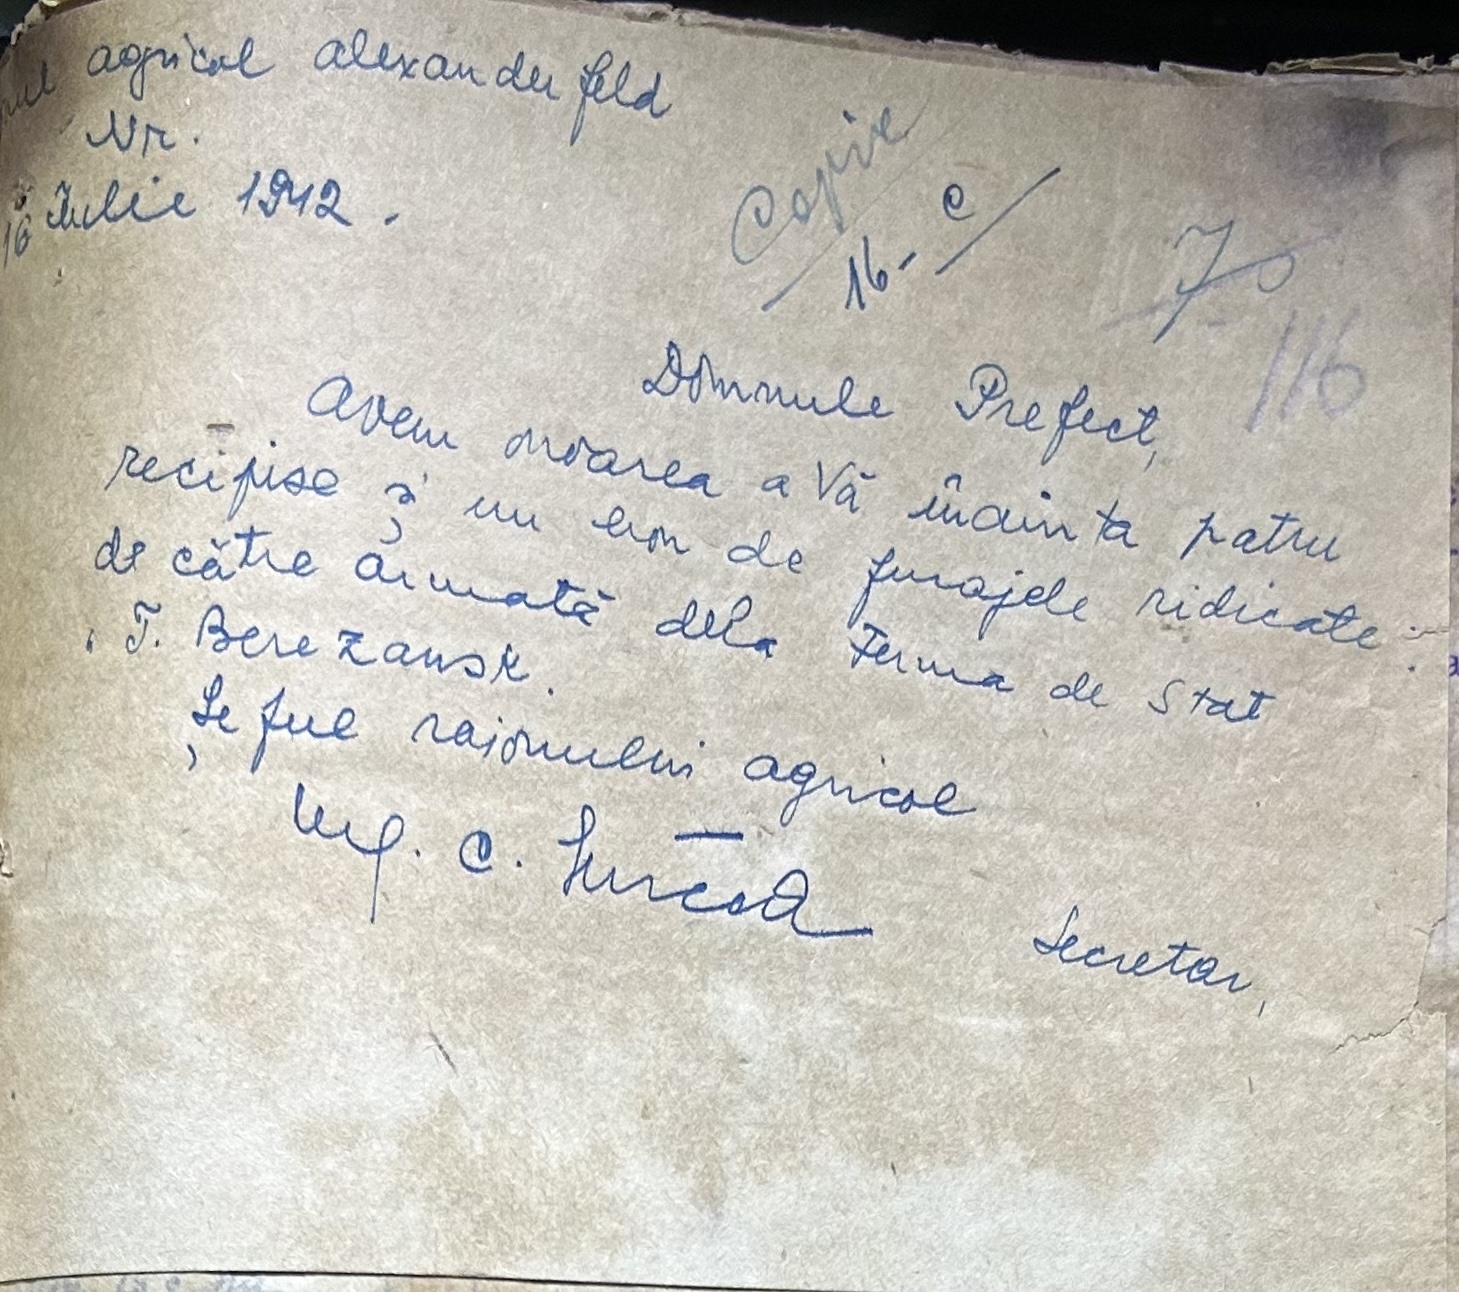 agricol Alexanderfeld
Nr.
16 Iulie 1942.
Copie
16- C
70
116
Domnule Prefect,
Avem onoarea a Vă înainta patru
recipise și un bon de furajele ridicate
de către armată dela Ferma de Stat
T. Berezansk.
Șeful raionului agricol
Ing. C.
Secretar,